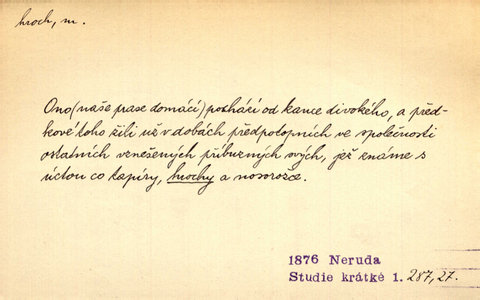 hroch, m.
Ono (naše prase domácí) pochází od kance divokého, a před-
kové toho žili už v dobách předpotopních ve společnosti
ostatních vznešených příbuzných svých, jež známe s
úctou co tapíry, hrochy a nosorožce.
1876 Neruda
Studie krátké 1. 287,27.